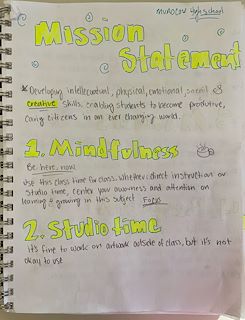 Murdock High School
Mission
Statement
* Developing intellectual, physical, emotional, social &
creative skills, enabling students to become productive,
caring citizens in an ever changing world.
1. Mindfulness
Be here, now
Use this class time for class. Whether direct instruction or
studio time, center your awareness and attention on
learning & growing in this subject. Focus
2. Studio time
It's fine to work on artwork outside of class, but it's not
okay to use